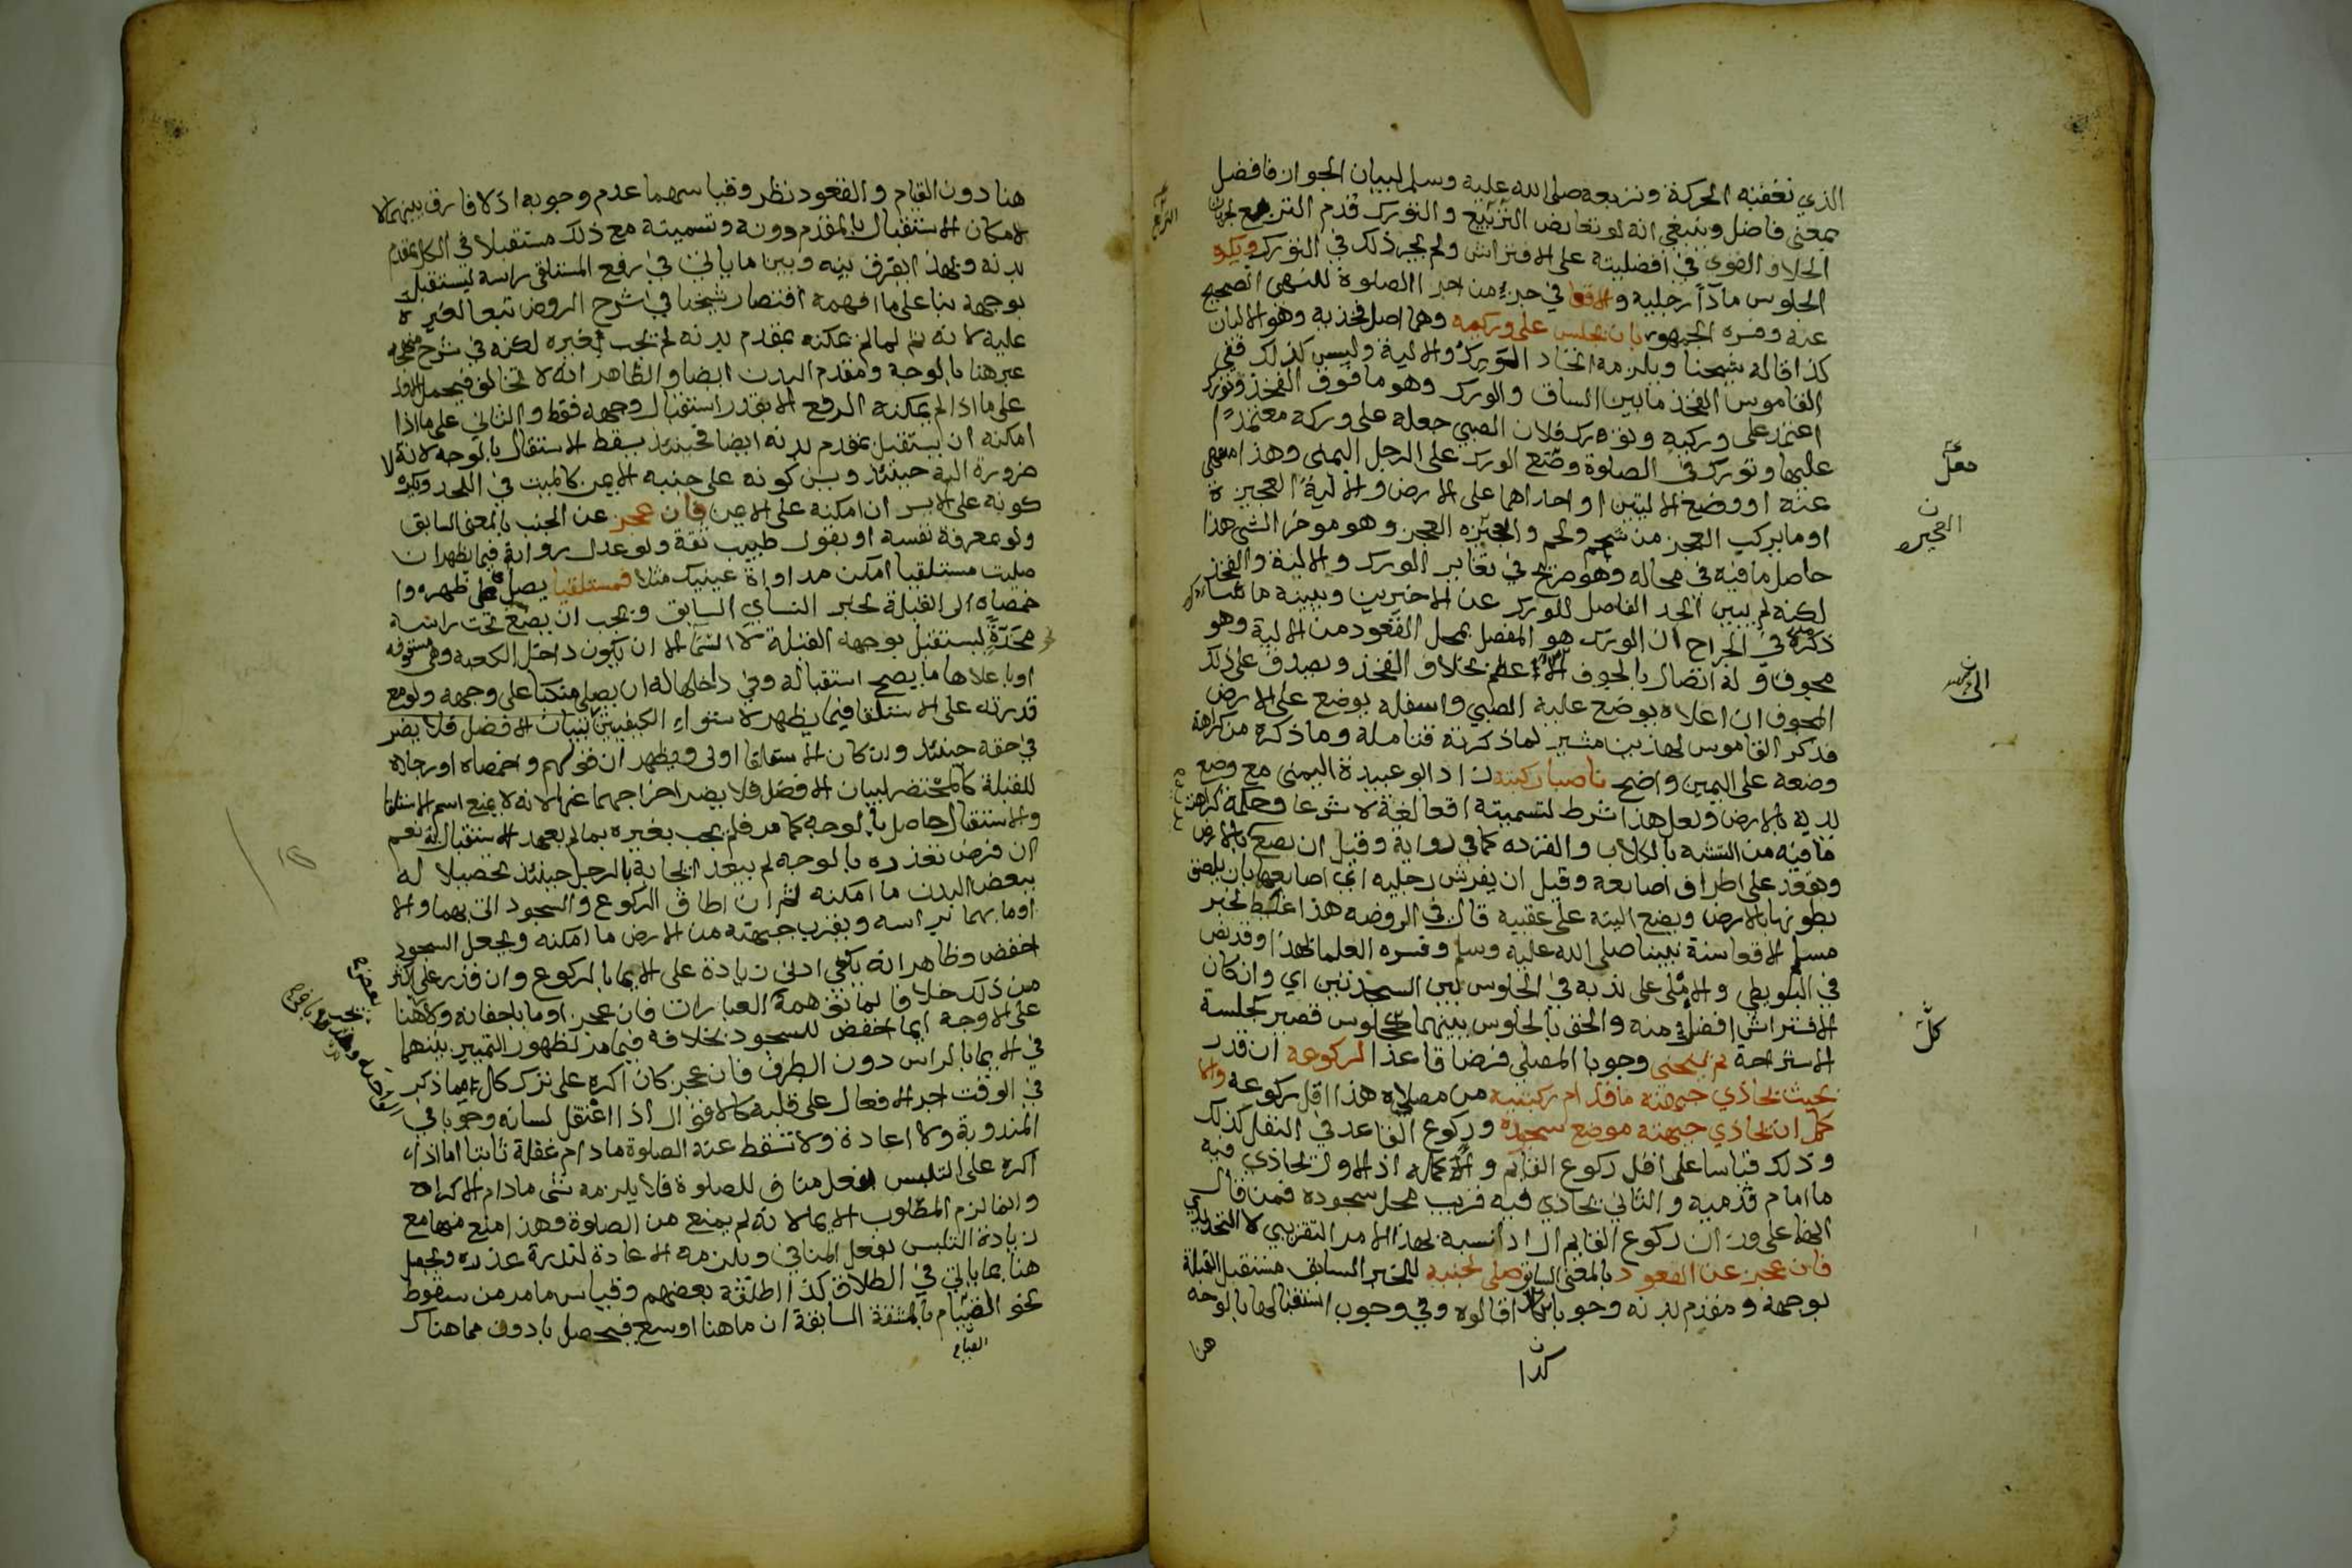 الذي تعقبه الحركة وتربعه صلى الله عليه وسلم لبيان الجواز فافضل
بمعنى فاضل وينبغي انه لو تعارض التربيع والتورك قدم التربع لجريان
الخلاف القوي في افضليته على الافتراش ولم يجر ذلك في التورك ويكره
الجلوس مادا رجليه والاقعا في جزء من اجزا الصلوة للنهي الصحيح
عنه وفسره الجمهور بان يجلس على وركيه وهما اصل فخذيه وهو الاليان
كذا قاله شيخنا ويلزمه اتحاد الورك والالية وليس كذلك ففي
القاموس الفخذ ما بين الساق والورك وهو ما فوق الفخذ وتورك
اعتمد على وركه وتورك فلان الصبي جعله على وركه معتمدا
عليها وتورك في الصلوة وضع الورك على الرجل اليمنى وهذا منهي
عنه او وضع الاليتين او احداهما على الارض والالية العجيزة
او ما يركب العجز من شحم ولحم والعجيزه العجز وهو موخر الشي هذا
حاصل ما فيه في محاله وهو صريح في تغاير الورك والالية والفخذ
لكنه لم يبين الحد الفاصل للورك عن الاخيرين ويبينه ما
ذكره في الجراح ان الورك هو المفصل بمحل القعود من الالية وهو
مجوف وله اتصال بالجوف الاعظم بخلاف الفخذ ويصدق على ذلك
المجوف ان اعلاه يوضع عليه الصبي واسفله يوضع على الارض
فذكر القاموس لهذين مشير لما ذكرته فتامله وما ذكره من كراهة
وضعه على اليمين واضح ناصبا ركبتيه زاد ابو عبيدة اليمنى مع وضع
يديه بالارض ولعل هذا شرط لتسميته اقعا لغة لا شرعا وحكمة كراهته
ما فيه من التشبه بالكلاب والقرده كما في رواية وقيل ان يضع بالارض
ويقعد على اطراف اصابعه وقيل ان يفرش رجليه اي اصابعهما بان يلصق
بطونها بالارض ويضع اليته على عقبيه قال في الروضه هذا غلط لخبر
مسلم الاقعا سنة نبينا صلى الله عليه وسلم وفسره العلما بهذا وقد نص
في البويطي والاملى على ندبه في الجلوس بين السجدتين اي وان كان
الافتراش افضل منه والحق بالجلوس بينهما كل جلوس قصير كجلسة
الاستراحة ثم ينحني وجوبا المصلي فرضا قاعدا لركوعه ان قدر
بحيث تحاذي جبهته ما قدام ركبتيه من مصلاه هذا اقل ركوعه والا
كمل ان تحاذي جبهته موضع سجوده وركوع القاعد في النفل كذلك
وذلك قياسا على اقل ركوع القايم واكمله اذ الاول تحاذي فيه
ما امام قدميه والثاني تحاذي فيه قريب محل سجوده فمن قال
انهما على وزان ركوع القايم اراد بالنسبة لهذا الامر التقريبي لا التحديدي
فان عجز عن القعود بالمعنى السابق صلى لجنبه للخبر السابق مستقبل القبلة
بوجهه ومقدم بدنه وجوبا كذا قالوه وفي وجوب استقبالها بالوجه
هنا
كذا
هنا دون القيام والقعود نظر وقياسهما عدم وجوبه اذ لا فارق بينهما لا
لامكان الاستقبال بالمقدم دونه وتسميته مع ذلك مستقبلا في الكل بمقدم
بدنه وبهذا يفرق بينه وبين ما ياتي في رفع المستلقي راسه ليستقبل
بوجهه بنا على ما افهمه اقتصار شيخنا في شرح الروض تبعا لغيره
عليه لانه ثم لما لم يمكنه بمقدم بدنه لم تجب بغيره لكنه في شرح منهجه
عبر هنا بالوجه ومقدم البدن ايضا والظاهر انه لا تخالف فيحمل الاول
على ما اذا لم يمكنه الرفع الا بقدر استقبال وجهه فقط والثاني على ما اذا
امكنه ان يستقبل بمقدم بدنه ايضا فحينئذ يسقط الاستقبال بالوجه لانه لا
ضرورة اليه حينئذ ويسن كونه على جنبه الايمن كالميت في اللحد ويكره
كونه على الايسر ان امكنه على الايمن فان عجز عن الجنب بالمعنى السابق
ولو بمعرفة نفسه او بقول طبيب ثقة ولو عدل رواية فيما يظهر ان
صليت مستلقيا امكن مداواة عينيك مثلا فمستلقيا يصلي على ظهره وا
خمصاه الى القبلة لخبر النساي السابق ويجب ان يضع تحت راسه
مخدة ليستقبل بوجهه القبلة لا السما الا ان يكون داخل الكعبة وهي مسقوفه
او باعلاها ما يصح استقباله وفي داخلها له ان يصلي منكبا على وجهه ولو مع
قدرته على الاستلقا فيما يظهر لاستواء الكيفيتين لبيان الافضل فلا يضر
في حقه حينئذ وان كان الاستلقا اولى ويظهر ان قولهم واخمصاه او رجلاه
للقبلة كالمختصر لبيان الافضل فلا يضر اخراجهما عنها لانه لا يمنع اسم الاستلقا
والاستقبال حاصل بالوجه كما مر فلم يجب بغيره بما لم يعهد الاستقبال به نعم
ان فرض تعذره بالوجه لم يبعد ايجابه بالرجل حينئذ تحصيلا له
ببعض البدن ما امكنه ثم ان اطاق الركوع والسجود اتى بهما والا
اوما بهما براسه ويقرب جبهته من الارض ما امكنه ويجعل السجود
اخفض وظاهر انه يكفي ادنى زيادة على الايما بالركوع وان قدر على اكثر
من ذلك خلافا لما توهمه العبارات فان عجز اوما باجفانه ولا هنا
على الاوجه ايما اخفض للسجود بخلافه فيما مر لظهور التمييز بينهما
في الايما بالراس دون الطرف فان عجز كان اكره على ترك كل ما ذكر
في الوقت اجرا الافعال على قلبه كالاقوال اذا اعتقل لسانه وجوبا في
المندوبة ولا اعادة ولا تسقط عنه الصلوة ما دام عقله ثابتا اما اذا
اكره على التلبس بفعل مناف للصلوة فلا يلزمه شي مادام الاكراه
وانما لزم المطلوب الايما لانه لم يمنع من الصلوة وهذا منع منها مع
زيادة التلبس بفعل المنافي ويلزمه الاعادة لندرة عذره ويجعل
هنا بما ياتي في الطلاق كذا اطلقه بعضهم وقياس ما مر من سقوط
نحو القيام بالمشقة السابقة ان ما هنا اوسع فيحصل بادون مما هناك
القيام